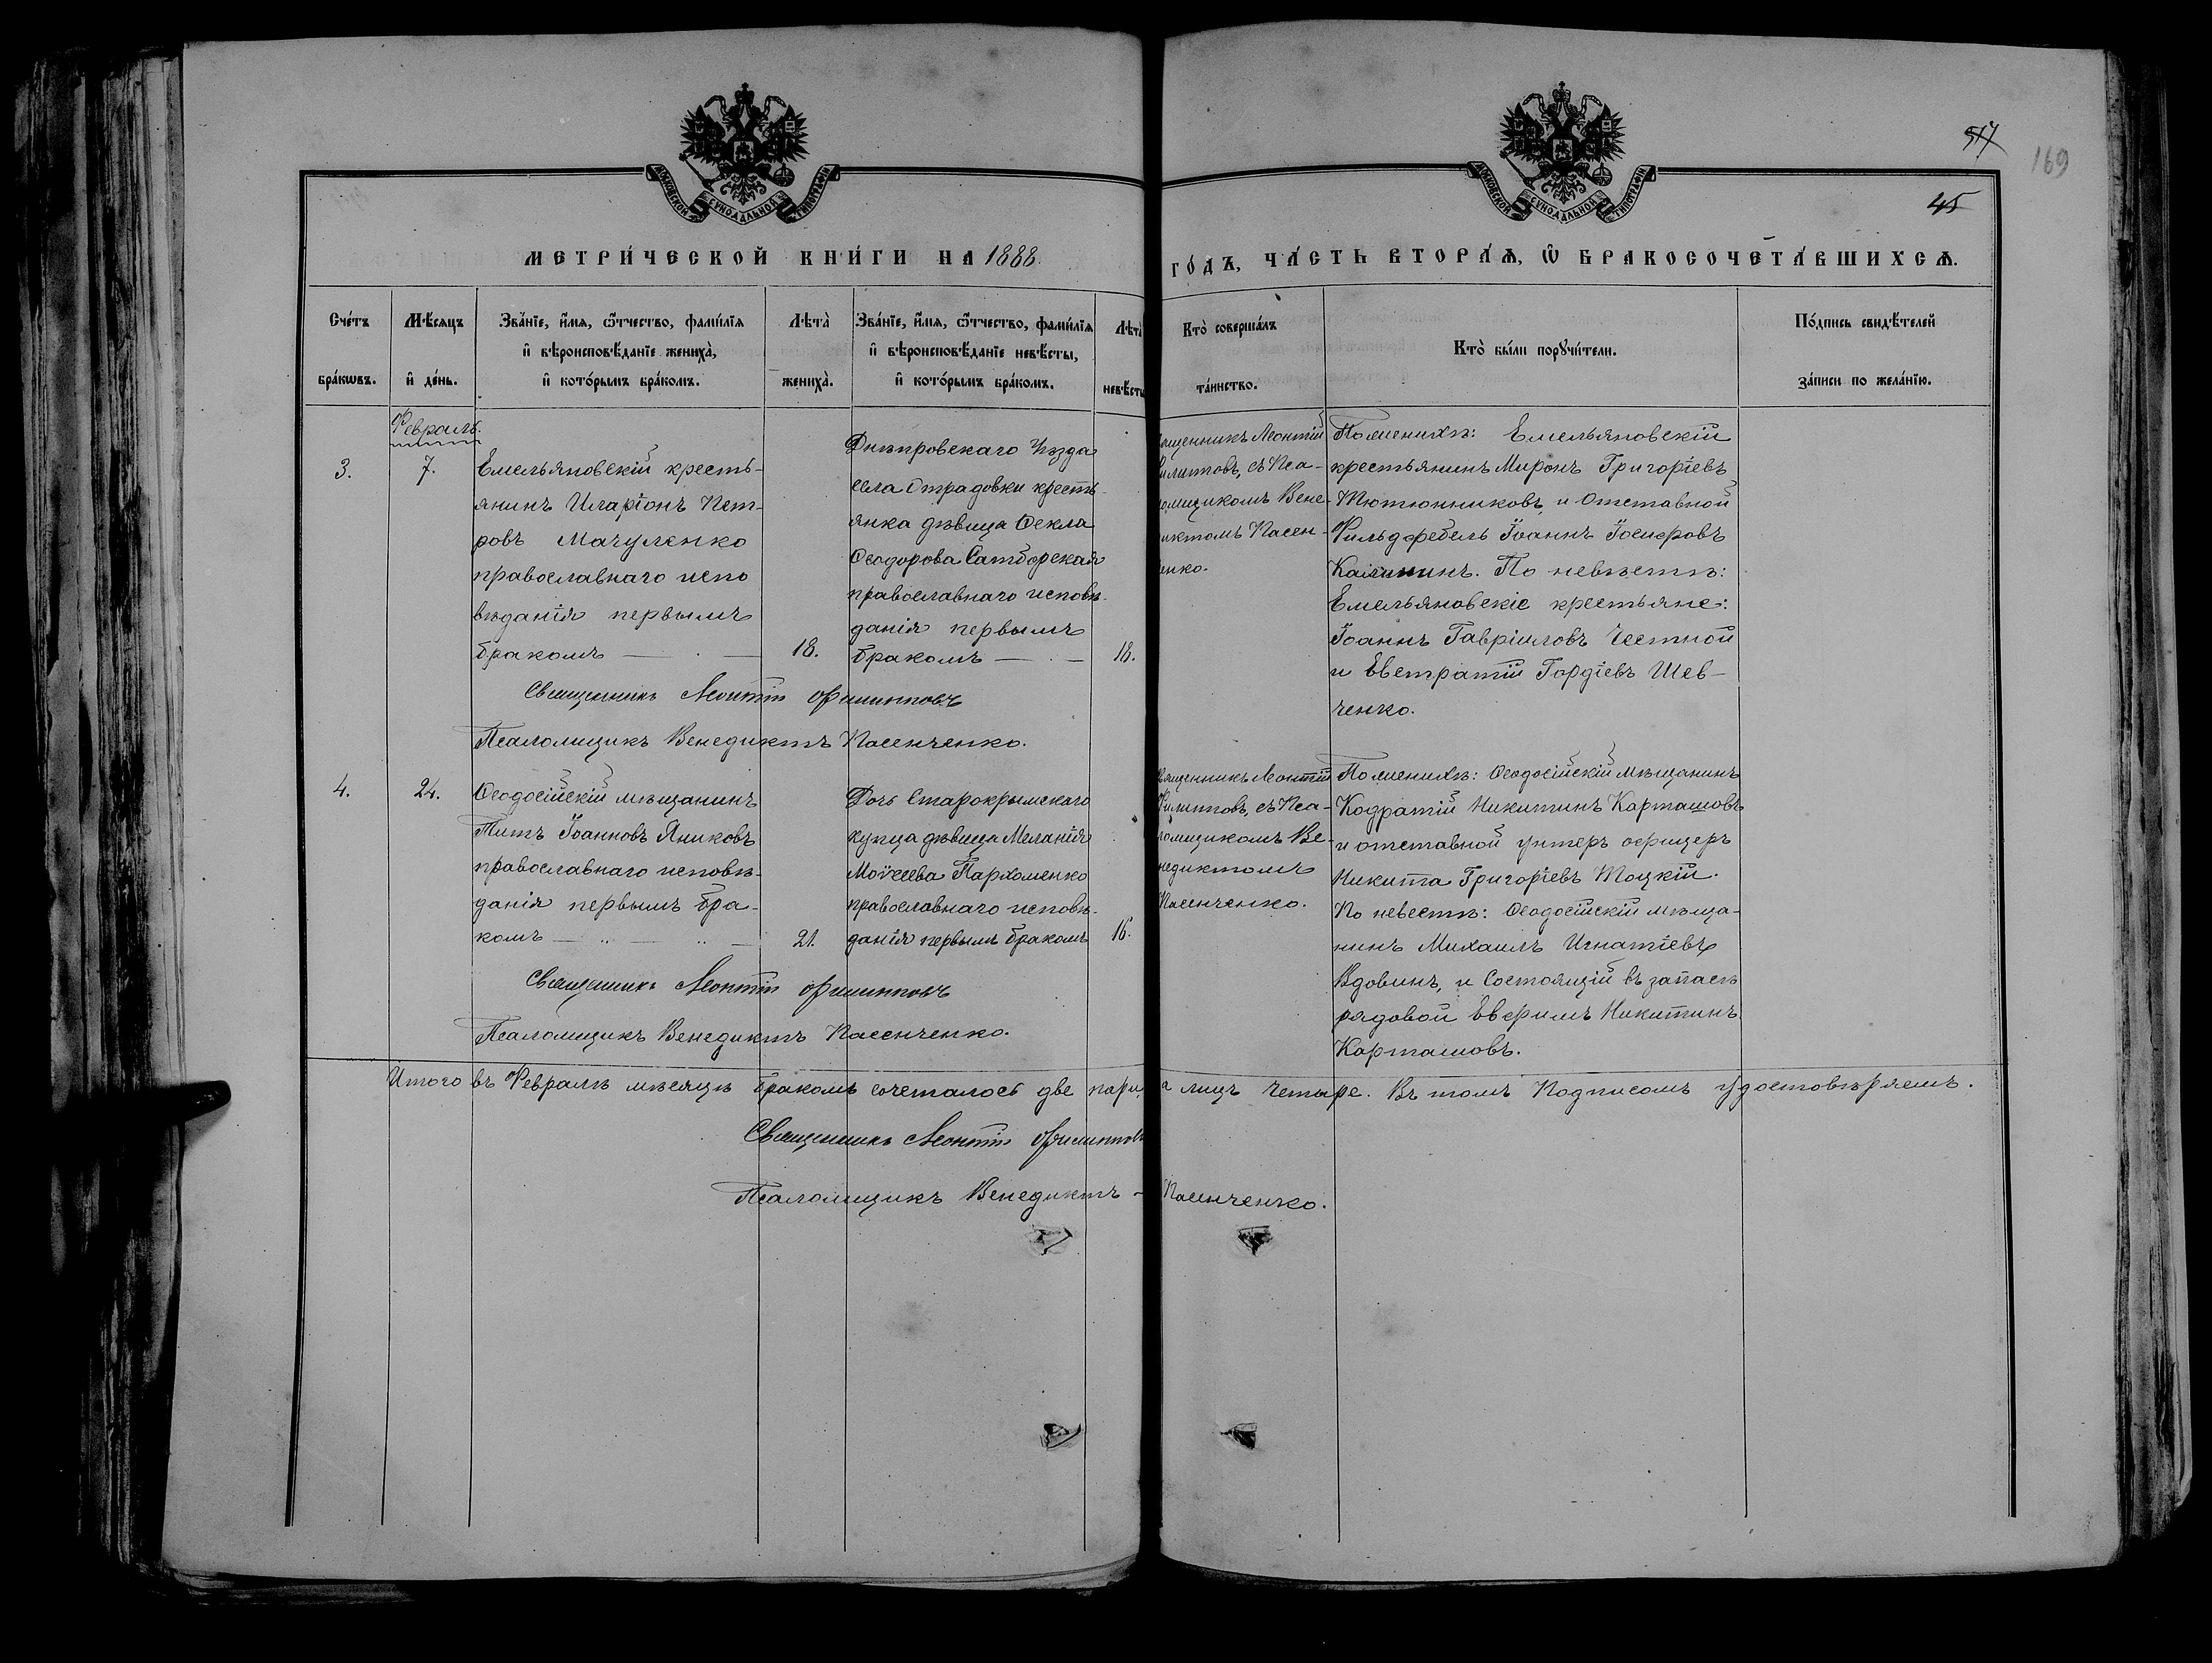 517
169
45
МОСКОВСКОЙ СѴНОДАЛЬНОЙ ТИПОГРАФІИ
МОСКОВСКОЙ СѴНОДАЛЬНОЙ ТИПОГРАФІИ
МЕТРИ́ЧЕСКОЙ КНИ́ГИ НА 1888
ГО́ДЪ, ЧА́СТЬ ВТОРА́Ѧ, Ѿ БРАКОСОЧЕТА́ВШИХСѦ.
Сче́тъ
бра́кѡвъ.
Мѣ́сѧцъ
и҆ де́нь.
Зва́нїе, и҆́мѧ, ѻ҆́тчество, фами́лїѧ
и҆ вѣроисповѣ́данїе жениха̀,
и҆ кото́рымъ бра́комъ.
Лѣ́та̀
жениха̀.
Зва́нїе, и҆́мѧ, ѻ҆́тчество, фами́лїѧ
и҆ вѣроисповѣ́данїе невѣ́сты,
и҆ кото́рымъ бра́комъ.
Лѣ́та̀
невѣ́сты
Кто̀ соверша́лъ
та́инство.
Кто̀ бы́ли порꙋчи́тели.
По́дпись свидѣ́телей
за́писи по жела́нїю.
Февраль.
3.
7.
Емельяновскій кресть-
янинъ Иларіонъ Пет-
ровъ Мачуленко
православнаго испо
вѣданія первымъ
бракомъ — . —
18.
Днѣпровскаго Уѣзда
села Отрадовки кресть
янка дѣвица Ѳекла
Ѳеодорова Самборская
православнаго исповѣ-
данія первымъ
бракомъ — . —
18.
ященникъ Леонтій
илипповъ, съ Пса-
омщикомъ Вене-
иктомъ Пасен-
енко.
По женихѣ: Емельяновскій
крестьянинъ Миронъ Григоріевъ
Тютюнниковъ и Отставной
Фильдфебель Іоаннъ Іосифовъ
Калининъ. По невѣстѣ:
Емельяновскіе крестьяне:
Іоаннъ Гавріиловъ Честной
и Евстратій Гордіевъ Шев-
ченко.
Священникъ Леонтій Филипповъ
Псаломщикъ Венедиктъ Пасенченко.
4.
24.
Ѳеодосійскій мѣщанинъ
Титъ Іоанновъ Яшковъ
православнаго исповѣ-
данія первымъ бра-
комъ — .. — .. —
21.
Дочь Старокрымскаго
купца дѣвица Меланія
Моѵсеева Пархоменко
православнаго исповѣ-
данія первымъ бракомъ
16.
вященникъ Леонтій
Филипповъ, съ Пса-
ломщикомъ Ве-
недиктомъ
Пасенченко.
По женихѣ: Ѳеодосійскій мѣщанинъ
Кодратій Никитинъ Карташовъ
и отставной унтеръ офицеръ
Никита Григоріевъ Тоцкій.
По невестѣ: Ѳеодосійскій мѣща-
нинъ Михаилъ Игнатіевъ
Вдовинъ, и Состоящій въ запасѣ
рядовой Евфимъ Никитинъ
Карташовъ.
Священникъ Леонтій Филипповъ
Псаломщикъ Венедиктъ Пасенченко.
Итого въ Февралѣ мѣсяцѣ бракомъ сочеталось две пары, а лицъ Четыре. Въ томъ Подписомъ удостовѣряемъ.
Священникъ Леонтій Филипповъ
Псаломщикъ Венедиктъ - Пасенченко.